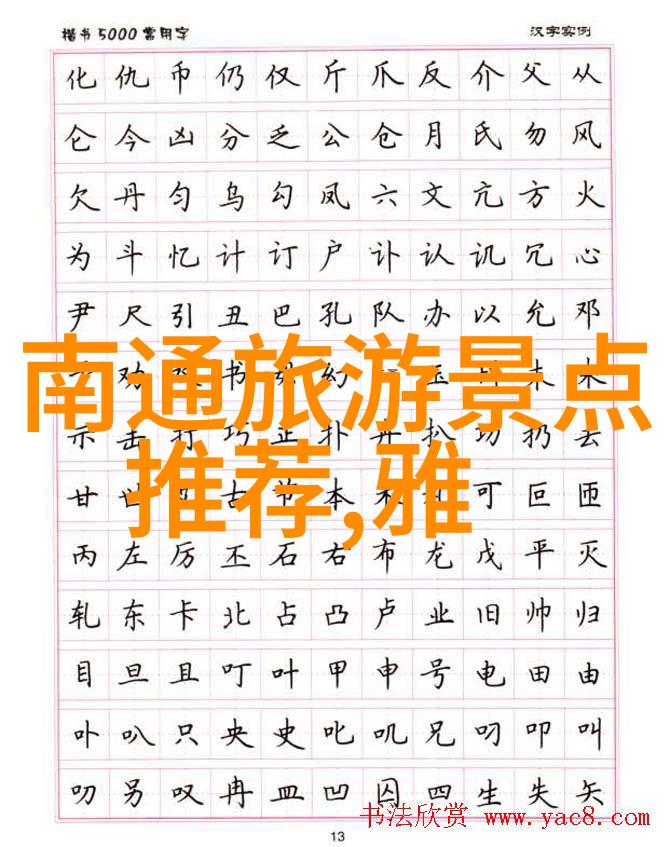 楷书5000常用字 汉字实例
化仇币仍仅斤爪反介父从
仑今凶分乏公仓月氏勿风
欠丹匀乌勾凤六文亢方火
为斗忆计订户讣认讥冗心
尹尺引丑巴孔队办以允邓
劝 书 幻
南通旅游景点
示击打巧正扑 扒功扔去
推荐,雅
甘世 古节本术 可叵匝
丙左厉丕石右布龙戊平灭
轧东卡北占凸卢业旧帅归
目旦且叮叶甲申号电田由
卟叭只央史叱叽兄叼叩叫
叨另叹冉皿凹囚四生失矢
书法欣赏 www.yac8.com
13